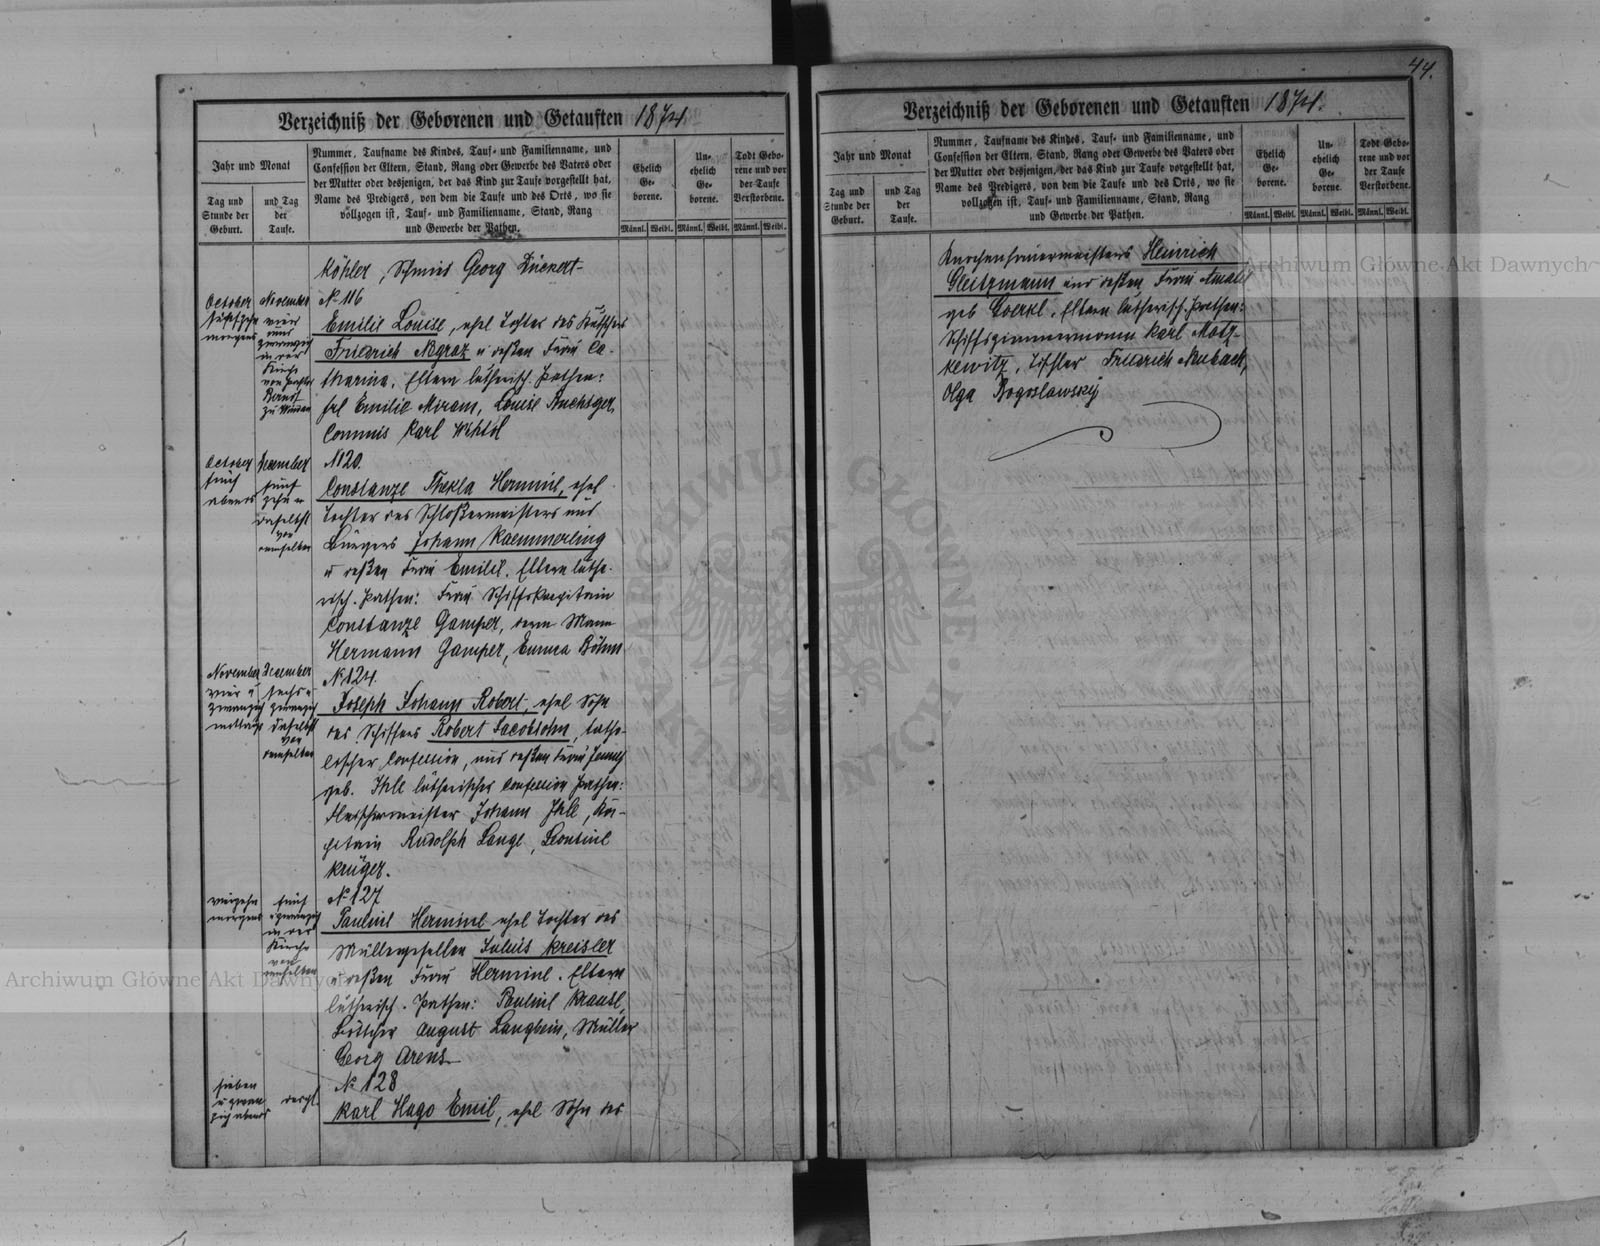 44.
Verzeichniß der Geborenen und Getauften 1874.
Jahr und Monat
Tag und
Stunde der
Geburt.
und Tag
der
Taufe.
Nummer, Taufname des Kindes, Tauf- und Familienname, und
Confession der Eltern, Stand, Rang oder Gewerbe des Vaters oder
der Mutter oder desjenigen, der das Kind zur Taufe vorgestellt hat,
Name des Predigers, von dem die Taufe und des Orts, wo sie
vollzogen ist, Tauf- und Familienname, Stand, Rang
und Gewerbe der Pathen.
Ehelich
Ge-
borene.
Un-
ehelich
Ge-
borene.
Todt Gebo-
rene und vor
der Taufe
Verstorbene.
Männl. Weibl. Männl. Weibl. Männl. Weibl.
Köhler, Schmied Georg Dückert
October
morgens
November
vier
und
zwanzig
in der
Kirche
von Pastor
Berndt
№ 116
Emilie Louise, ehel Tochter des Kutschers
Friedrich Negraz u deßen Frau Ca-
tharina, Eltern lutherisch. Pathen:
frl Emilie Miram, Louise Buchtger,
Commis Karl
October
fünf
abends
December
fünf
zehn
daselbst
von
demselben
№ 120.
Constanze Thekla Hermine, ehel
Tochter des Schloßermeisters und
Bürgers Johann Kaemmerling
u deßen Frau Emilie. Eltern luthe-
risch. Pathen: Frau Schiffskapitain
Constanze Gamper, deren Mann
Hermann Gamper, Emma Böhm
November
vier u
zwanzig
mittags
December
sechs u
zwanzig
daselbst
von
demselben
№ 124.
Joseph Johann Robert, ehel Sohn
des Schiffers Robert Jacobsohn, catho-
lischer Confession, und deßen Frau Jenny
geb. Ihle lutherischer Confession Pathen:
Fleischermeister Johann Ihle, Ka-
pitain Rudolph Lange, Leontine
Krüger.
vierzehn
morgens
fünf
u zwanzig
in der
Kirche
von
demselben
№ 127
Pauline Hermine ehel Tochter des
Müllergesellen Julius Kreisler
u deßen Frau Hermine. Eltern
lutherisch. Pathen: Pauline Krause,
Böttcher August Langbein, Müller
Georg Arens
sieben
u zwan
zig abends
desgl.
№ 128
Karl Hugo Emil, ehel Sohn des
Verzeichniß der Geborenen und Getauften 1874.
Jahr und Monat
Tag und
Stunde der
Geburt.
und Tag
der
Taufe.
Nummer, Taufname des Kindes, Tauf- und Familienname, und
Confession der Eltern, Stand, Rang oder Gewerbe des Vaters oder
der Mutter oder desjenigen, der das Kind zur Taufe vorgestellt hat,
Name des Predigers, von dem die Taufe und des Orts, wo sie
vollzogen ist, Tauf- und Familienname, Stand, Rang
und Gewerbe der Pathen.
Ehelich
Ge-
borene.
Un-
ehelich
Ge-
borene.
Todt Gebo-
rene und vor
der Taufe
Verstorbene.
Männl. Weibl. Männl. Weibl. Männl. Weibl.
Knochenhauermeisters Heinrich
Gleitzmann und deßen Frau Amalie
geb Goerkl. Eltern lutherisch. Pathen:
Schiffszimmermann Karl Motz-
kewitz, Tischler Friedrich Neubach,
Olga Bogoslawsky
Archiwum Główne Akt Dawnych
Archiwum Główne Akt Dawnych
ARCHIWUM GŁÓWNE AKT DAWNYCH